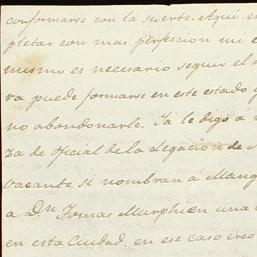 conformarse con la suerte. Aqui, e
pletar con mas perfecion mi e
mismo es necesario seguir el
ra puede formarse en este estado y
no abondonarle. Ya le digo a
za de oficial de la legacion de
vacante, si nombran á Mang
a Dn Tomas Murphi en una
en esta Ciudad, en ese caso creo